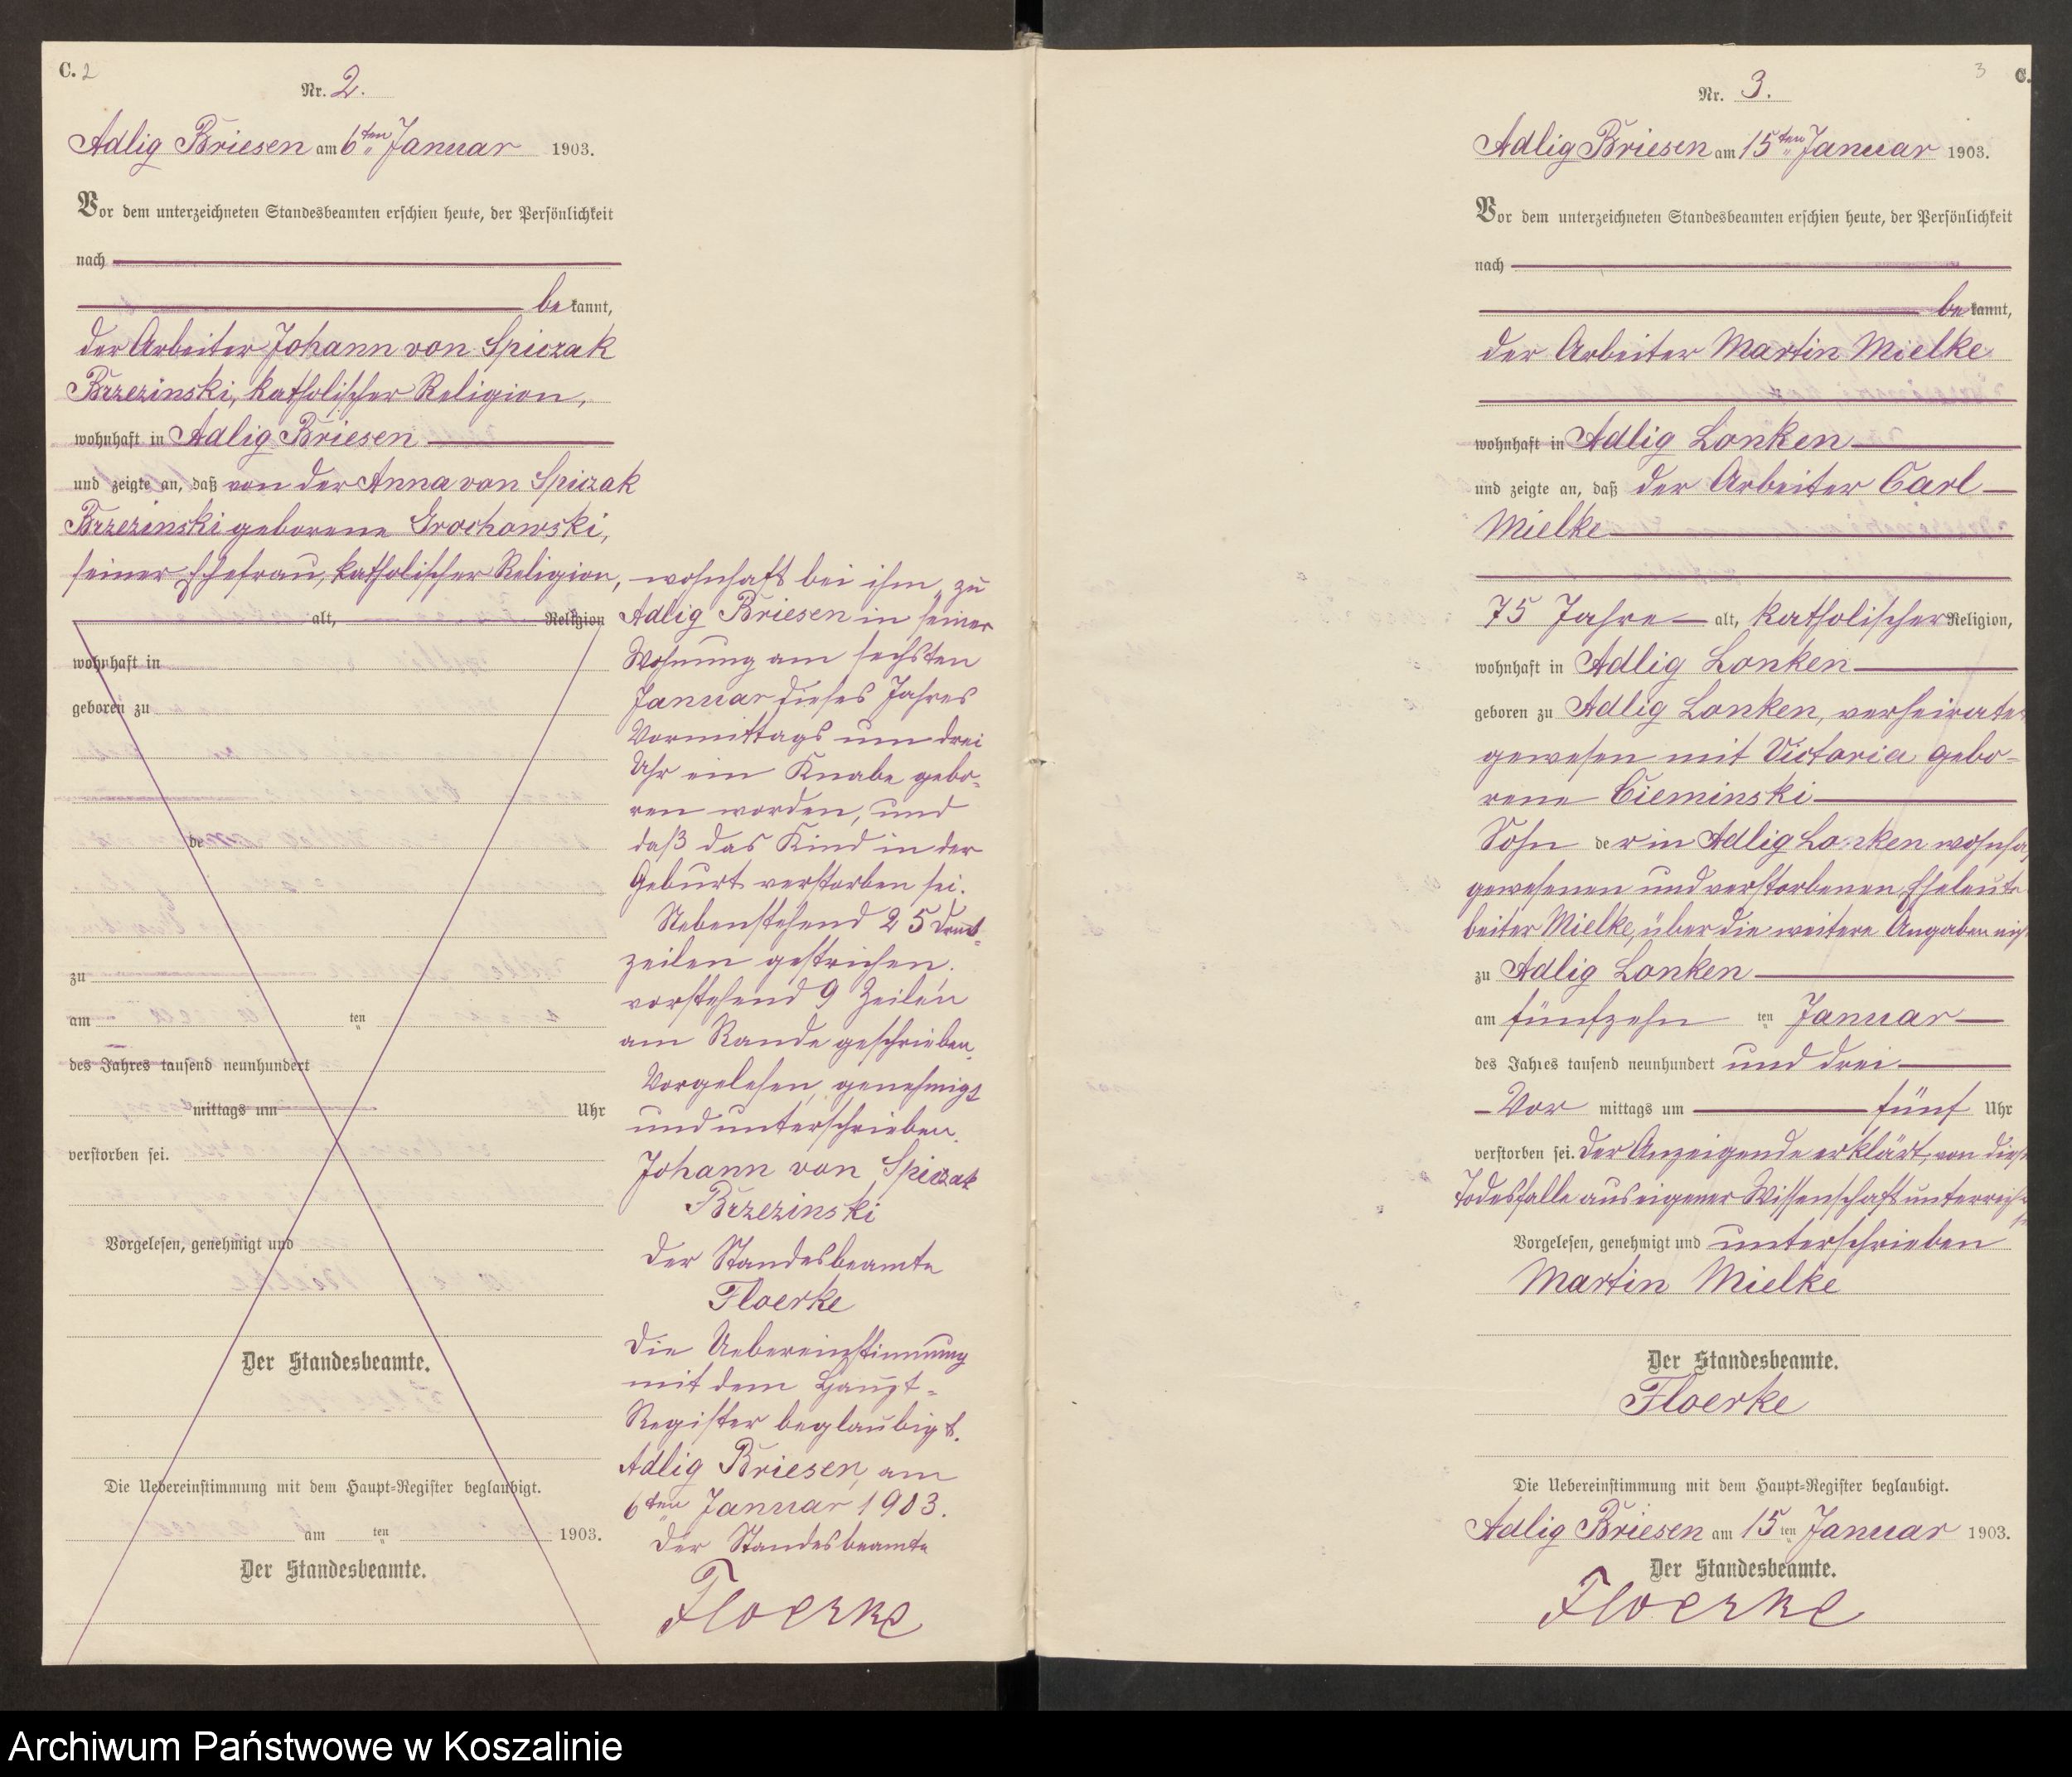 C. 2
Nr. 2.
Adlig Briesen am 6ten Januar 1903.
Vor dem unterzeichneten Standesbeamten erschien heute, der Persönlichkeit
nach
bekannt,
der Arbeiter Johann von Spiczak
Brzezinski, katholischer Religion,
wohnhaft in Adlig Briesen
und zeigte an, daß von der Anna von Spiczak
Brzezinski geborene Grochowski,
seiner Ehefrau, katholischer Religion,
alt, Religion
wohnhaft in
geboren zu
de
zu
am ten
des Jahres tausend neunhundert
mittags um Uhr
verstorben sei.
Vorgelesen, genehmigt und
Der Standesbeamte.
Die Uebereinstimmung mit dem Haupt-Register beglaubigt.
am ten 1903.
Der Standesbeamte.
wohnhaft bei ihm, zu
Adlig Briesen in seiner
Wohnung am sechsten
Januar dieses Jahres
Vormittags um drei
Uhr ein Knabe gebo-
ren worden, und
daß das Kind in der
Geburt verstorben sei.
Nebenstehend 25 Druck-
zeilen gestrichen.
vorstehend 9 Zeilen
am Rande geschrieben.
Vorgelesen, genehmigt
und unterschrieben.
Johann von Spiczak
Brzezinski
Der Standesbeamte
Floerke
Die Uebereinstimmung
mit dem Haupt-
Register beglaubigt.
Adlig Briesen, am
6ten Januar 1903.
Der Standesbeamte
Floerke
3 C.
Nr. 3.
Adlig Briesen am 15ten Januar 1903.
Vor dem unterzeichneten Standesbeamten erschien heute, der Persönlichkeit
nach
bekannt,
der Arbeiter Martin Mielke
wohnhaft in Adlig Lonken
und zeigte an, daß der Arbeiter Carl
Mielke
75 Jahre alt, katholischer Religion,
wohnhaft in Adlig Lonken
geboren zu Adlig Lonken, verheiratet
gewesen mit Victoria gebo-
rene Cieminski
Sohn der in Adlig Lonken wohnha
gewesenen und verstorbenen Eheleute
beiter Mielke, über die weitere Angaben nich
zu Adlig Lonken
am fünfzehn ten Januar
des Jahres tausend neunhundert und drei
Vor mittags um fünf Uhr
verstorben sei. Der Anzeigende erklärt, von dies
Todesfalle aus eigener Wissenschaft unterrich
Vorgelesen, genehmigt und unterschrieben
Martin Mielke
Der Standesbeamte.
Floerke
Die Uebereinstimmung mit dem Haupt-Register beglaubigt.
Adlig Briesen am 15ten Januar 1903.
Der Standesbeamte.
Floerke
Archiwum Państwowe w Koszalinie